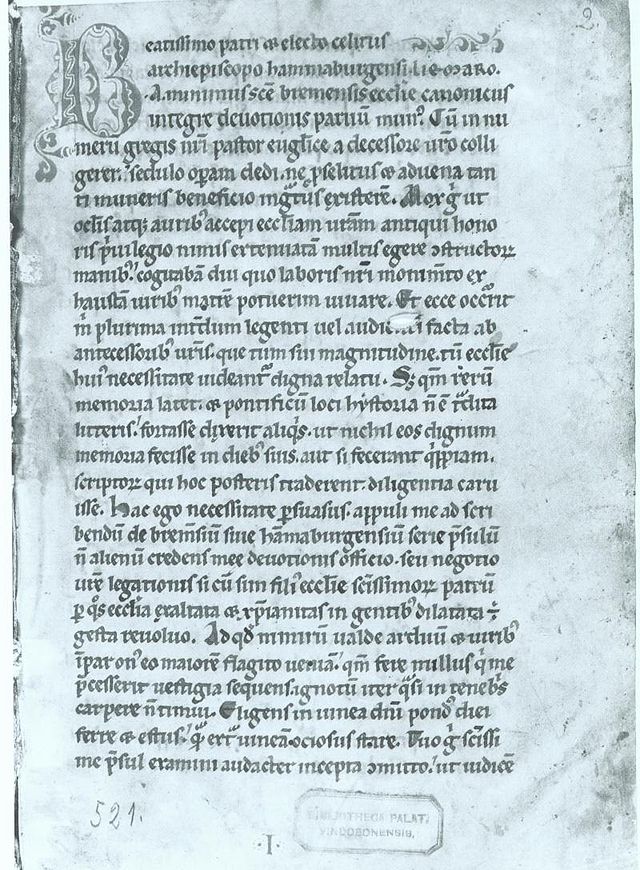 2
Beatissimo patri & electo celitus
archiepiscopo hammaburgensi. liemaro.
.A. minimus scē bremensis ecclīe canonicus
integre devotionis paruū mun⁹. Cū in nu
meru gregis nr̄i pastor euglīce a decessore uro colli
gerer. sedulo opam dedi. ne pselitus & aduena tan
ti muneris beneficio ingᷓtus existerē. Mox gͥ ut
oclīs atq; aurib⁹ accepi eccliam uram antiqui hono
ris pͥuilegio nimis extenuatā multis egere ↄstructorꝝ
manib⁹. cogitabā diu quo laboris nr̄i monimto ex
haustā uirib⁹ matrē potuerim iuuare. Et ece occͬrit
m̄ plurima intdum legenti uel audienti facta ab
antecessorib⁹ uris. que tum sui magnitudine. tū ecclīe
hui⁹ necessitate uideant digna relatu. S; qm̄ rerū
memoria latet. & pontificū loci hystoria n̄ ē tͣdita
litteris. fortasse dixerit aliqͥs. ut nichil eos dignum
memoria fecisse in dieb⁹ suis. aut si fecerunt qͥppiam.
scriptorꝝ qui hoc posteris traderent. diligentia caru
isse. Hac ego necessitate psuasus. appuli me ad scri
bendū de bremsiū siue hāmaburgensiū serie psulū
n̄ alienū credens mee deuotionis officio. seu negotio
ure legationis si cū sim fili⁹ ecclīe scīssimorꝝ patrū
p qͦs ecclīa exaltata & xpianitas in gentib⁹ dilatata ÷
gesta reuoluo. Ad qd nimirū ualde arduū & uirib⁹
īpar on⁹ eo maiorē flagito ueniā. qm̄ fere nullus qͥ me
pcesserit uestigia sequens. ignotū iter qͣsi in tenebͥs
carpere n̄ timui. Eligens in uinea dnī pond⁹ diei
ferre & estus. qͣ extͣ uineā ociosus stare. Tuo gͥ scīssi
me psul examini audacter incepta ↄmitto. ut iudicē
521.
.I.
BIBLIOTHECA PALAT.
VINDOBONENSIS.